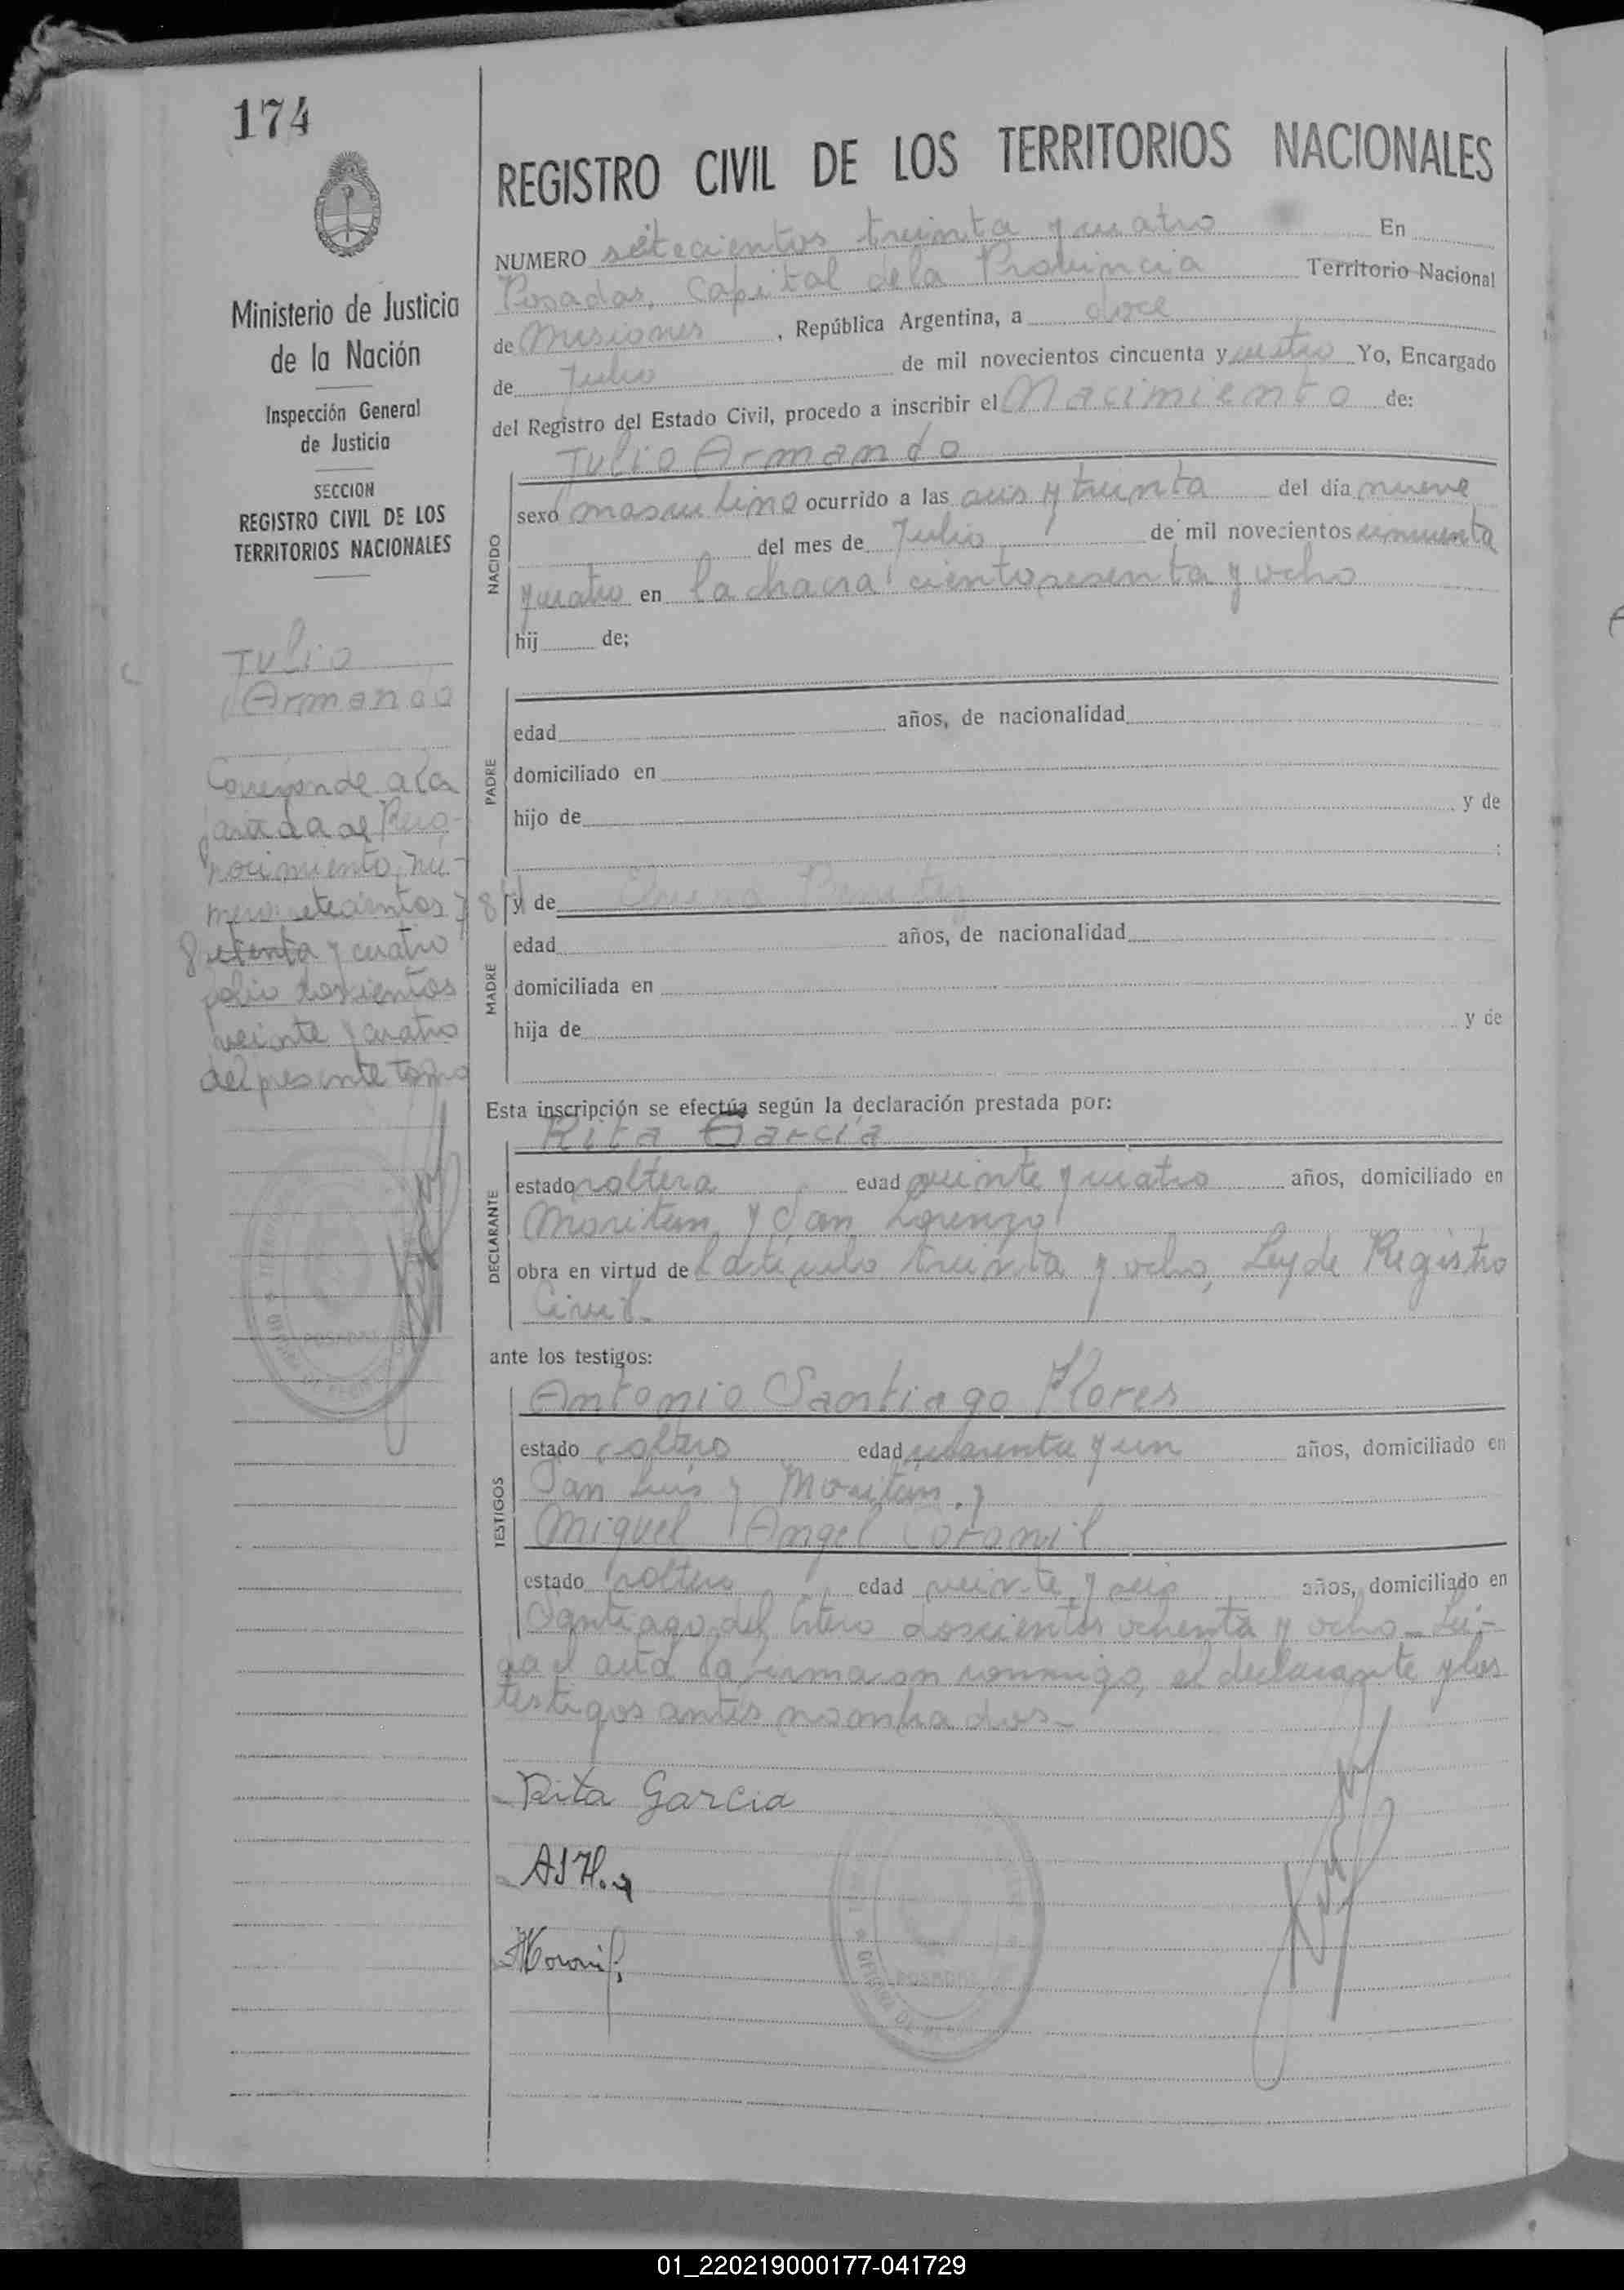 174
REGISTRO CIVIL DE LOS TERRITORIOS NACIONALES
NUMERO setecientos treinta y cuatro En
Posadas, Capital de la Provincia Territorio Nacional
de Misiones, República Argentina, a doce
de Julio de mil novecientos cincuenta y cuatro Yo, Encargado
del Registro del Estado Civil, procedo a inscribir el Nacimiento de:
Julio Armando
sexo masculino ocurrido a las seis y treinta del día nueve
del mes de Julio de mil novecientos cincuenta
y cuatro en la chacra ciento sesenta y ocho
hij de;
NACIDO
edad años, de nacionalidad
domiciliado en
hijo de y de
PADRE
y de
edad años, de nacionalidad
domiciliada en
hija de y de
MADRE
Esta inscripción se efectúa según la declaración prestada por:
Rita Garcia
estado soltera edad veinte y cuatro años, domiciliado en
Moritan y San Lorenzo
obra en virtud del artículo treinta y ocho, Ley de Registro
Civil.
DECLARANTE
ante los testigos:
Antonio Santiago Flores
estado soltero edad cuarenta y un años, domiciliado en
San Luis y Moritán, y
Miguel Angel
estado soltero edad veinte y seis años, domiciliado en
Santiago del Estero doscientos ochenta y ocho - Leí-
da el acta la firmaron conmigo, el declarante y los
testigos antes nombrados -
TESTIGOS
Rita Garcia
Ministerio de Justicia
de la Nación
Inspección General
de Justicia
SECCION
REGISTRO CIVIL DE LOS
TERRITORIOS NACIONALES
Julio
Armando
Corresponde a la
partida de Reco-
nocimiento nú-
mero setecientos
setenta y cuatro
folio doscientos
veinte y cuatro
del presente tomo
POSADAS
POSADAS
01_220219000177-041729